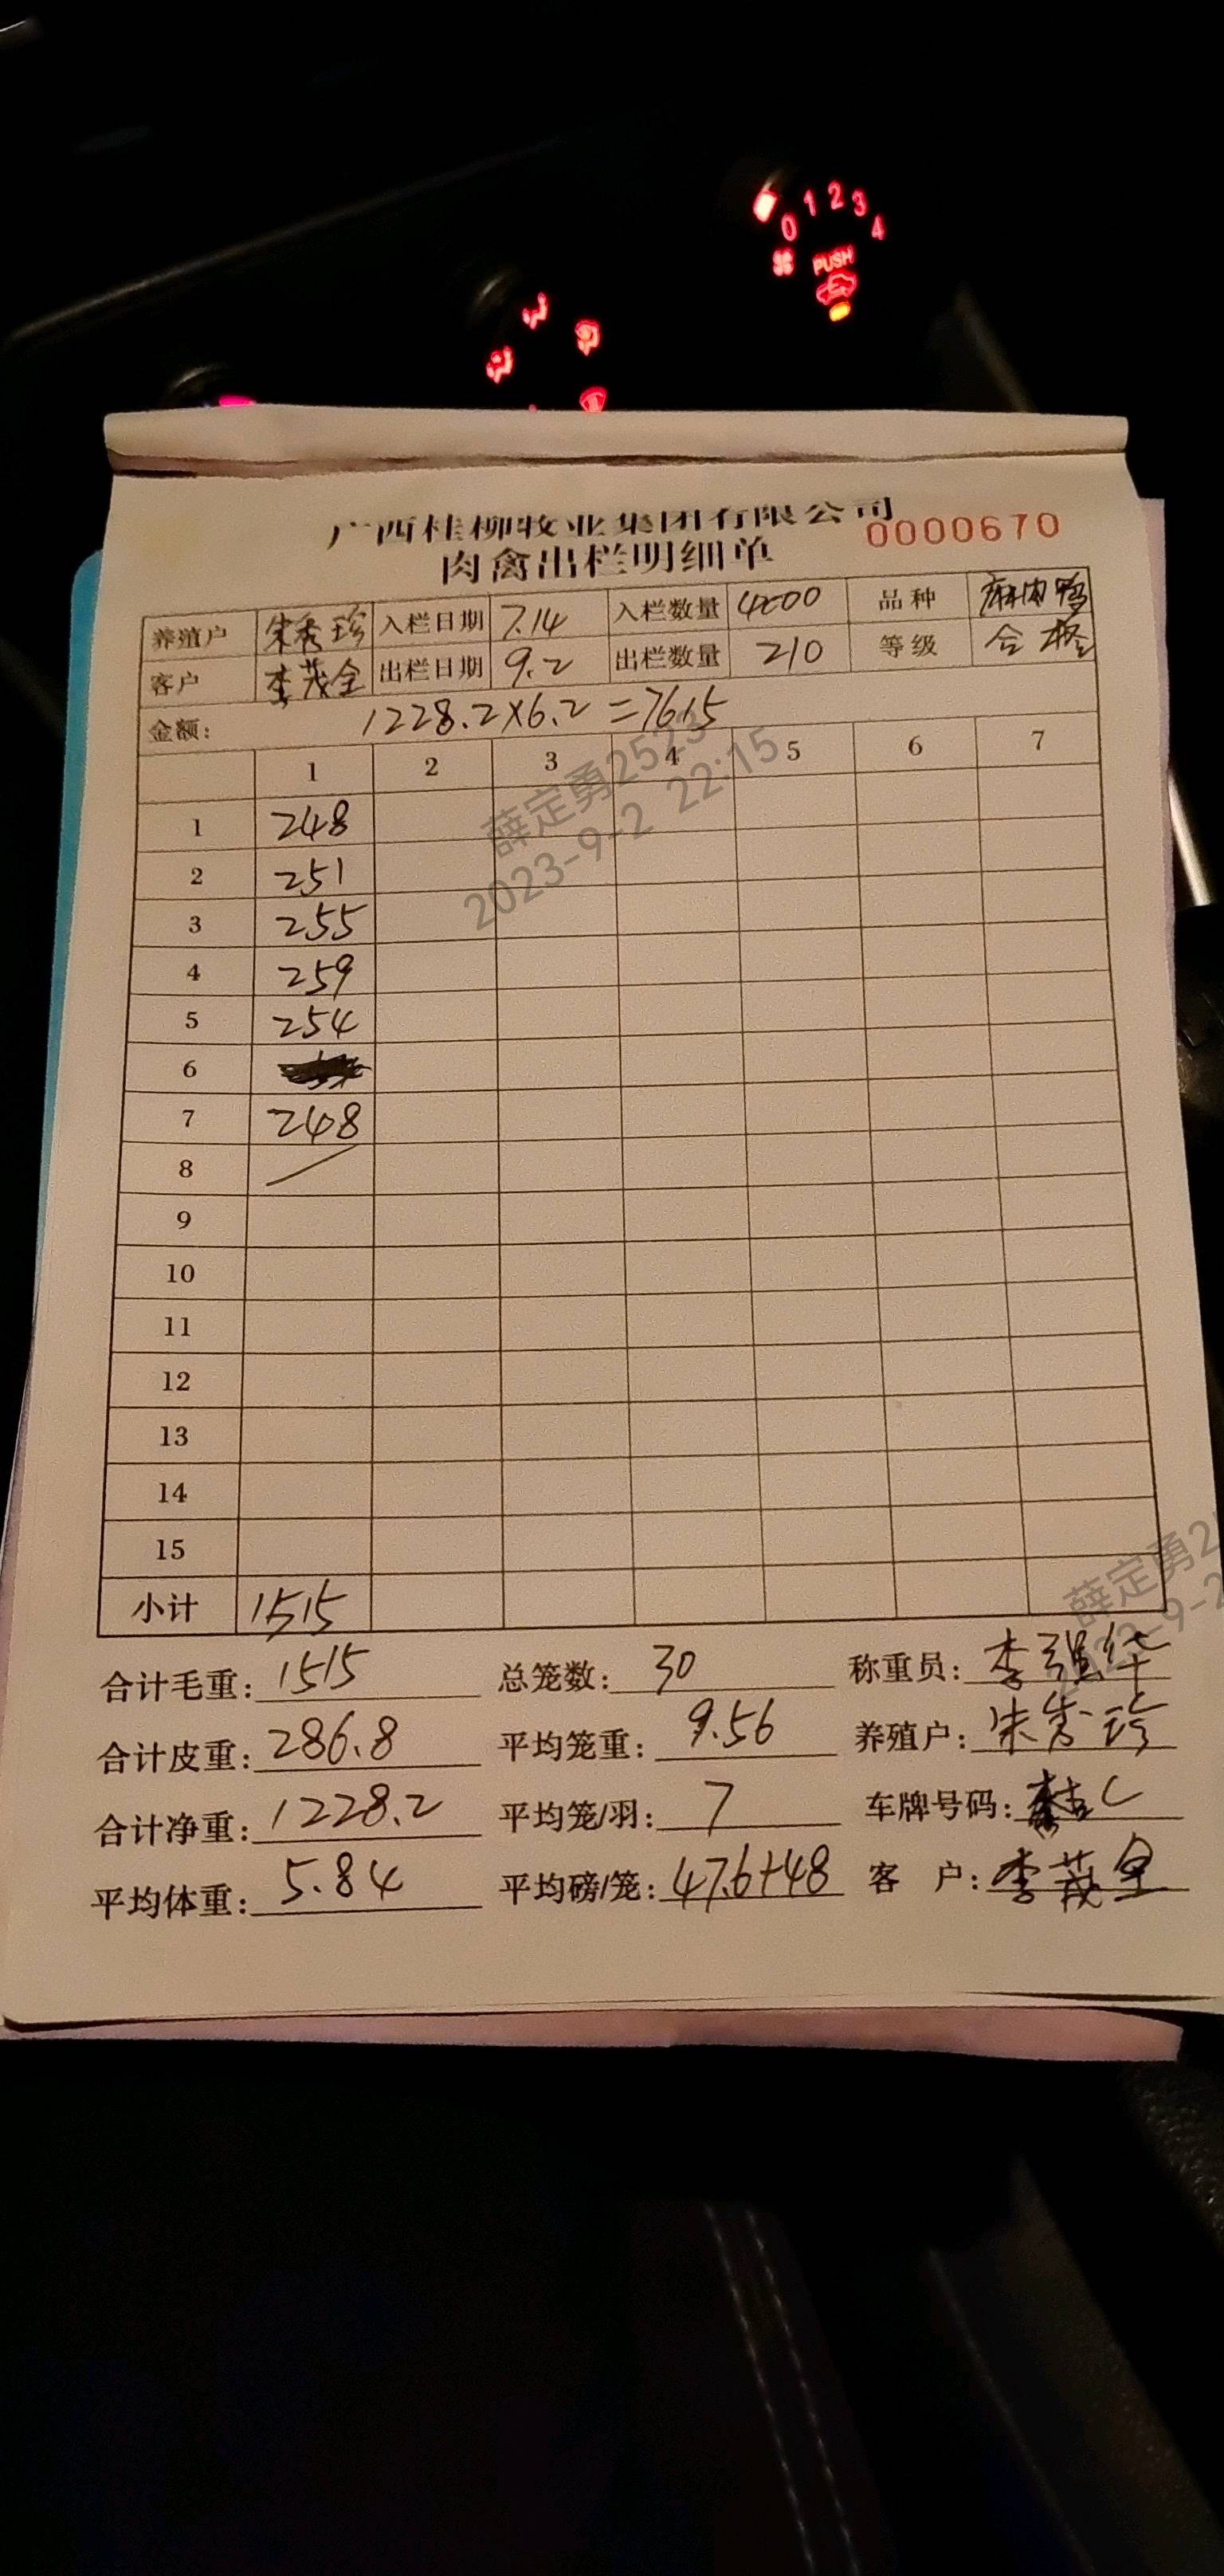 0 1 2 3 4
PUSH
广西桂柳牧业集团有限公司
肉禽出栏明细单 0000670
养殖户 朱秀珍 入栏日期 7.14 入栏数量 4000 品种 麻肉鸭
客户 李茂全 出栏日期 9.2 出栏数量 210 等级 合格
金额: 1228.2×6.2=7615
1 2 3 4 5 6 7
1 248
2 251
3 255
4 259
5 254
6
7 248
8
9
10
11
12
13
14
15
小计 1515
合计毛重: 1515 总笼数: 30 称重员: 李强华
合计皮重: 286.8 平均笼重: 9.56 养殖户: 朱秀珍
合计净重: 1228.2 平均笼/羽: 7 车牌号码:
平均体重: 5.84 平均磅/笼: 47.6+48 客户: 李茂全
薛定勇2523
2023-9-2 22:15
薛定勇2
2023-9-2